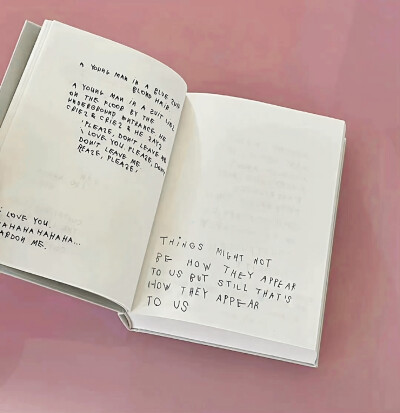 A YOUNG MAN IN A BLUE SUIT
BLOND HAIR
A YOUNG MAN IN A SUIT LIES
ON THE FLOOR BY THE
UNDERGROUND ENTRANCE. HE
CRIES & CRIES & HE SAYS
: PLEASE, DON'T LEAVE ME
I LOVE YOU PLEASE, DON'T
DON'T LEAVE ME
PLEASE,
I LOVE YOU.
HAHAHAHAHAHA...
PARDON ME.
THINGS MIGHT NOT
BE HOW THEY APPEAR
TO US BUT STILL THAT'S
HOW THEY APPEAR
TO US